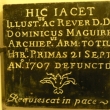 HIC IACET
ILLUST. AC REVER. D. D.
DOMINICUS MAGUIRE
ARCHIEP. ARM: TOTIUS
HIB. PRIMAS 21 SEPT
AN. 1707 DEFUNCT
Requiescat in pace